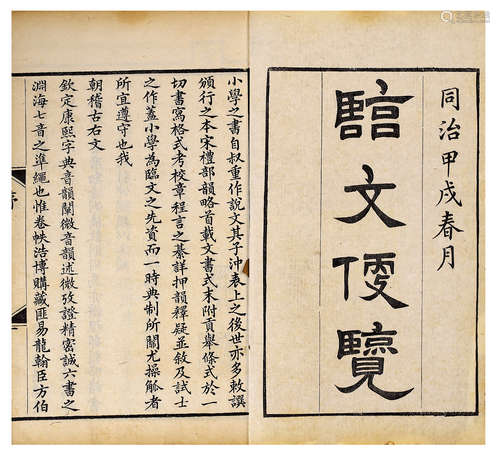 同治甲戌春月
臨文便覽
小學之書自叔重作說文其子沖表上之後世亦多敕撰
頒行之本宋禮部韻略首載文書式末附貢舉條式於一
切書寫格式考校章程言之綦詳押韻釋疑並敘及試士
之作蓋小學為臨文之先資而一時典制所關尤操觚者
所宜遵守也我
朝稽古右文
欽定康熙字典音韻闡微音韻述微攷證精密誠六書之
淵海七音之準繩也惟卷帙浩博購藏匪易龍翰臣方伯